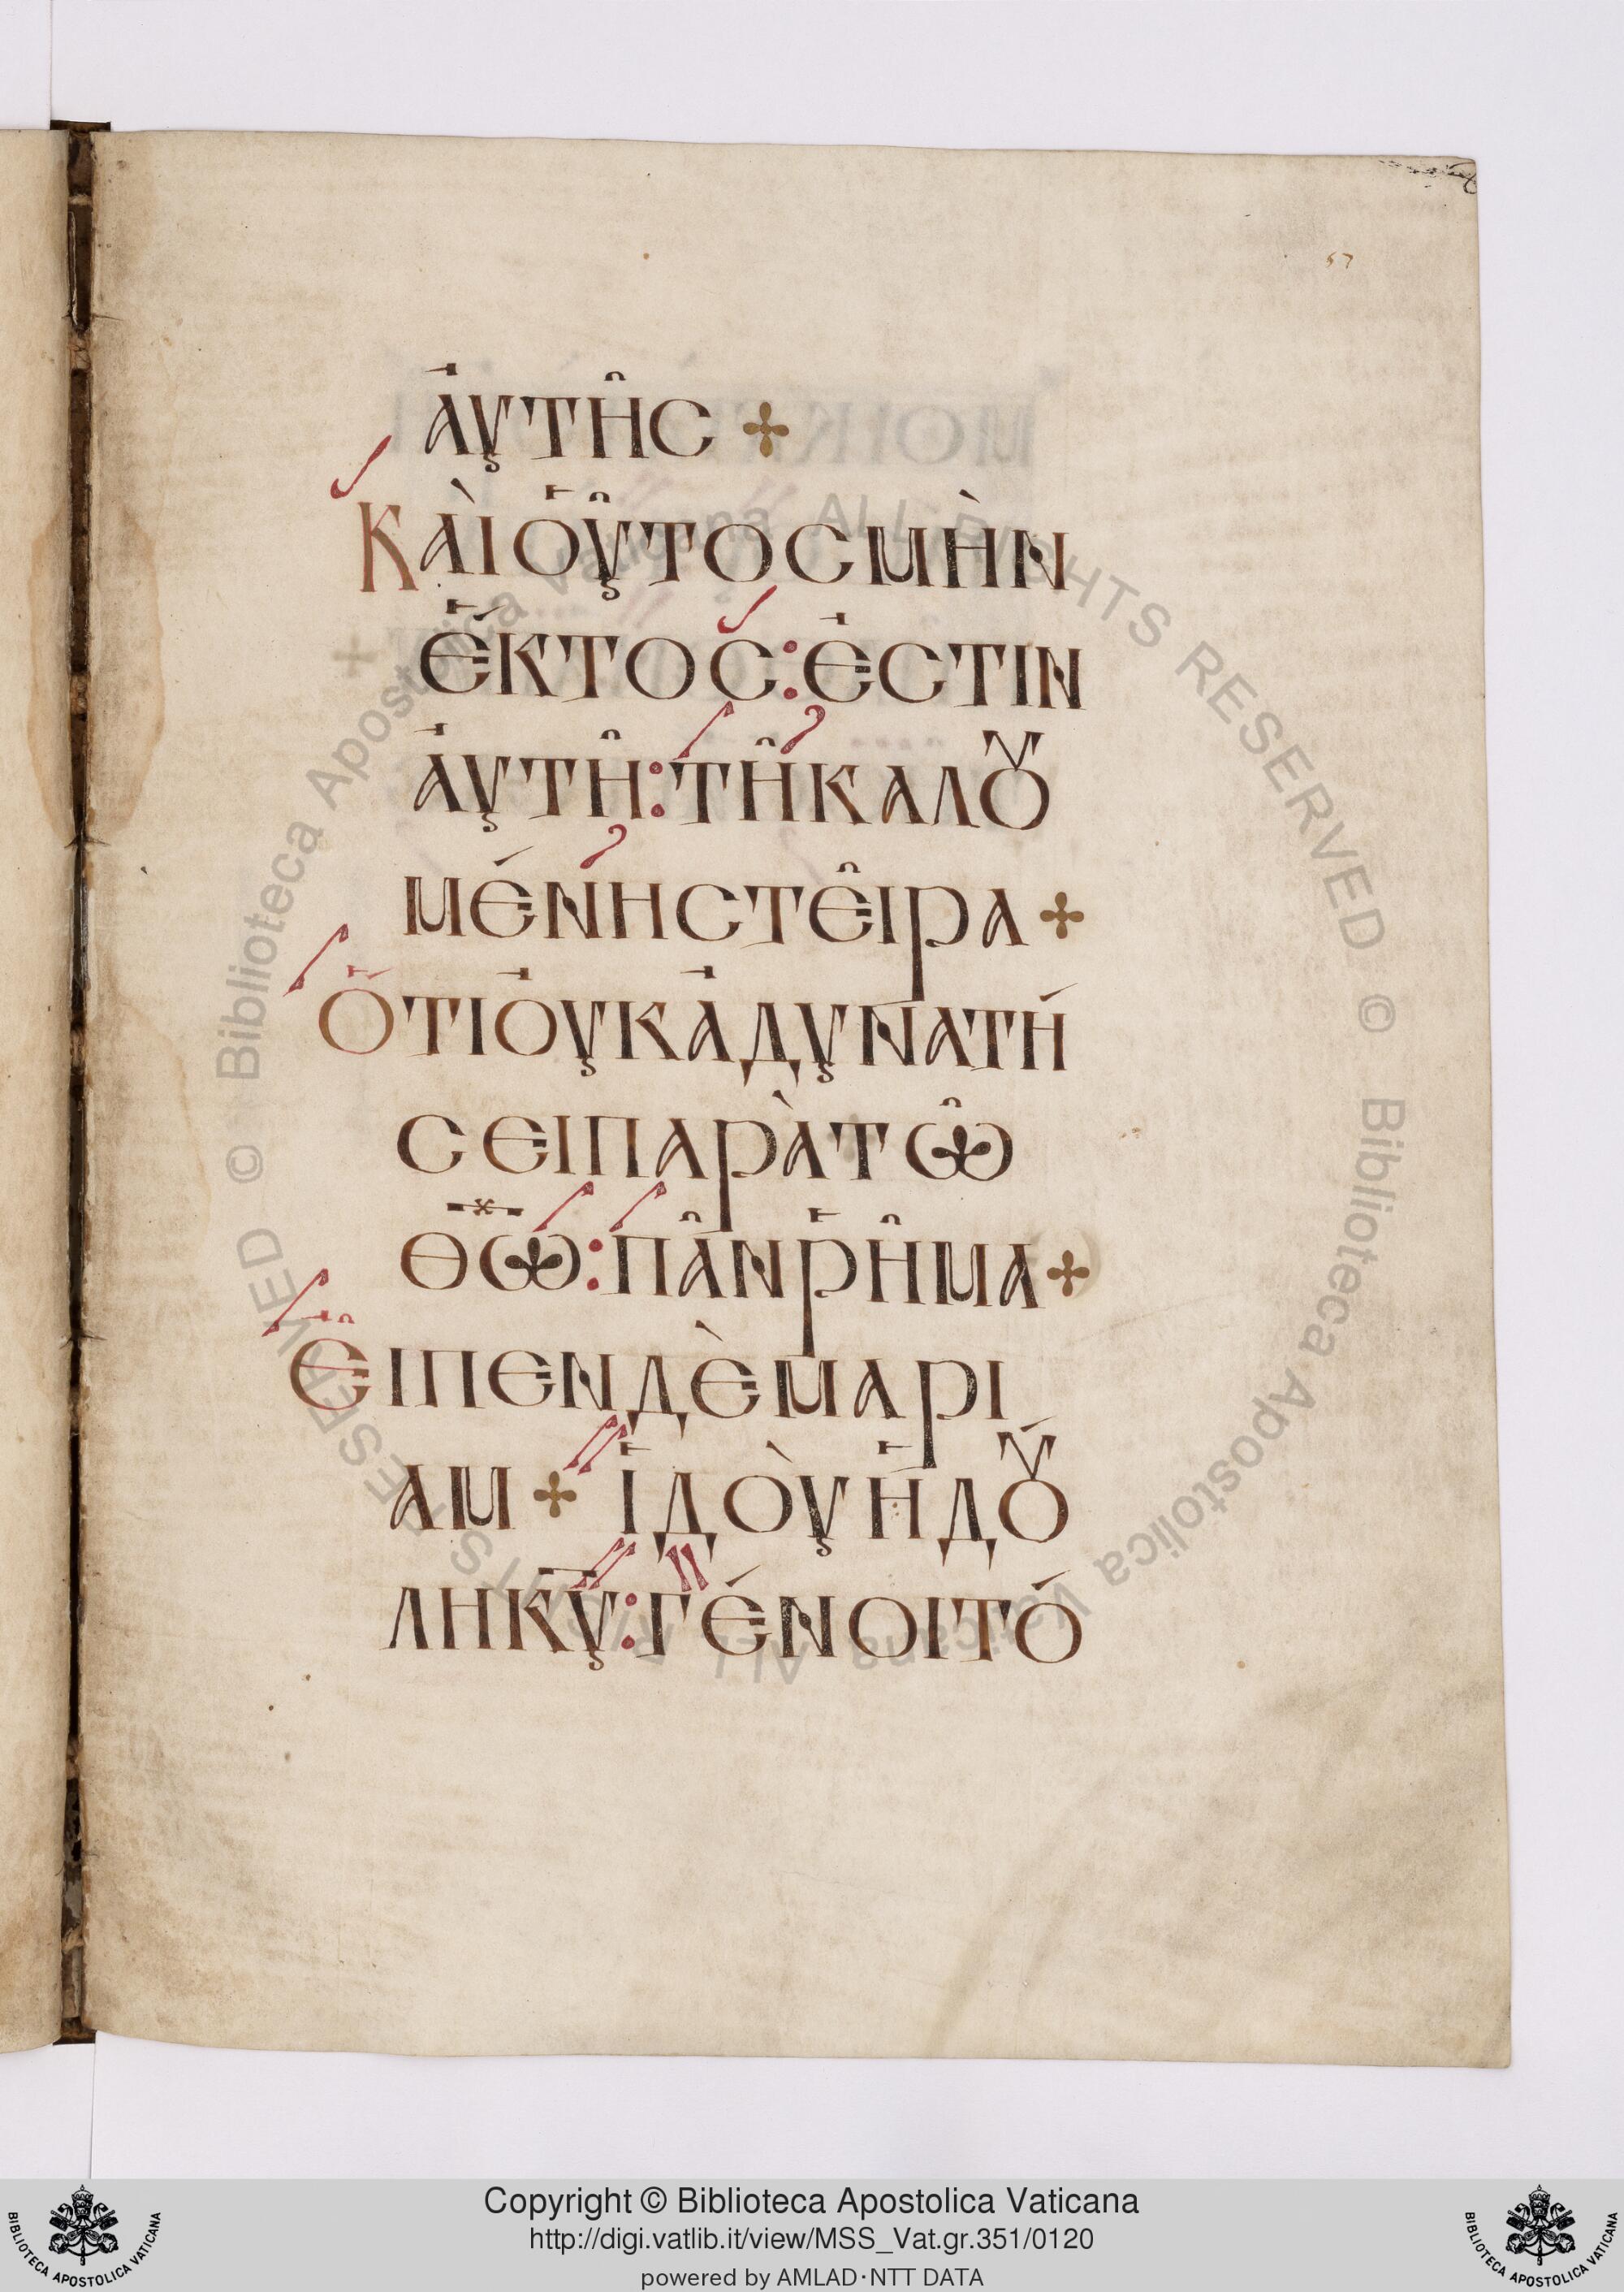 57
ἀυτῆς ✣
Κὰιοὗτοσμὴν
ἕκτος: ἐστιν
ἀυτῆ: τῆκαλȣ
μένηστεῖρα ✣
Ὅτιὀυκἀδυνατή
σειπαρὰτῶ
θ̅ω̅: πᾶνῥῆμα ✣
Εἶπενδὲμαρι
αμ ✣ ἱδὸυἡδȣ́
ληκ̅υ̅: γένοιτό
© Biblioteca Apostolica Vaticana ALL RIGHTS RESERVED © Biblioteca Apostolica Vaticana ALL RIGHTS RESERVED
BIBLIOTECA APOSTOLICA VATICANA
Copyright © Biblioteca Apostolica Vaticana
http://digi.vatlib.it/view/MSS_Vat.gr.351/0120
powered by AMLAD·NTT DATA
BIBLIOTECA APOSTOLICA VATICANA